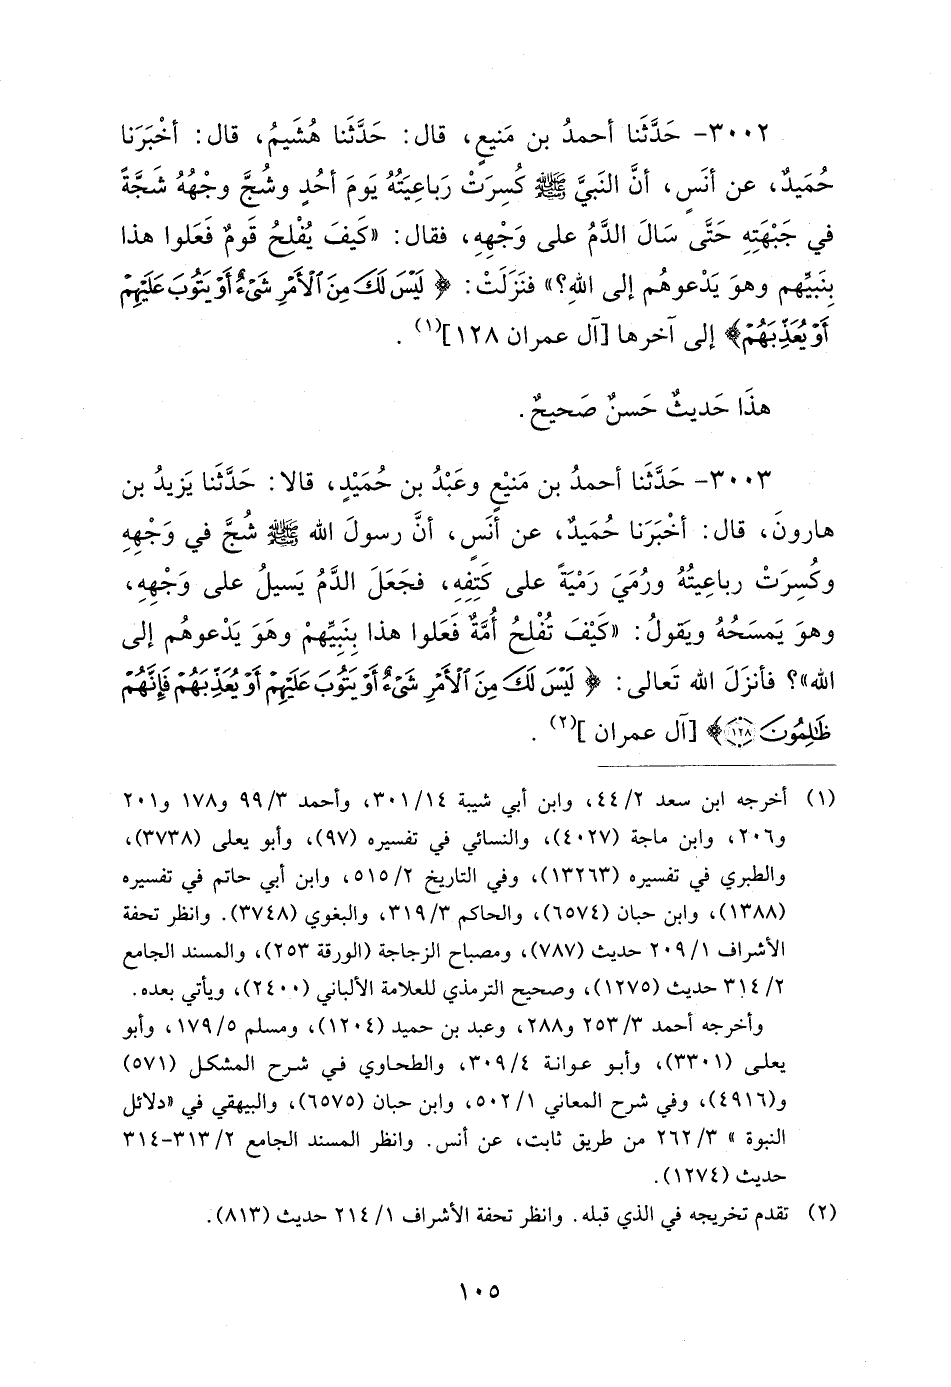 ٣٠٠٢- حَدَّثَنا أحمدُ بن مَنيعٍ، قال: حَدَّثَنا هُشَيمُ، قال: أخْبَرَنا
حُمَيدٌ، عن أنَسٍ، أنَّ النبيَّ ﷺ كُسِرَتْ رَباعِيَتُهُ يَومَ أحُدٍ وشُجَّ وجْهُهُ شَجَّةً
في جَبْهَتِهِ حَتَّى سَالَ الدَّمُ على وَجْهِهِ، فقال: «كَيفَ يُفْلِحُ قَومٌ فَعَلوا هذا
بِنَبيِّهِم وهوَ يَدْعوهُم إلى اللهِ؟» فنَزَلَتْ: ﴿ لَيْسَ لَكَ مِنَ ٱلْأَمْرِ شَىْءٌ أَوْ يَتُوبَ عَلَيْهِمْ
أَوْ يُعَذِّبَهُمْ﴾ إلى آخرها [آل عمران ١٢٨](١) .
هذَا حَديثٌ حَسنٌ صَحيحٌ.
٣٠٠٣- حَدَّثَنا أحمدُ بن مَنيْعٍ وعَبْدُ بن حُمَيْدٍ، قالا: حَدَّثَنا يَزيدُ بن
هارونَ، قال: أخْبَرَنا حُمَيدٌ، عن أنَسٍ، أنَّ رسولَ الله ﷺ شُجَّ في وَجْهِهِ
وكُسِرَتْ رباعِيتُهُ ورُمَيَ رَمْيَةً على كَتِفِهِ، فجَعَلَ الدَّمُ يَسيلُ على وَجْهِهِ،
وهوَ يَمسَحُهُ ويَقولُ: «كَيْفَ تُفْلِحُ أُمَّةٌ فَعَلوا هذا بِنَبِيِّهمْ وهَوَ يَدْعوهُم إلى
الله»؟ فأنزَلَ الله تَعالى: ﴿ لَيْسَ لَكَ مِنَ ٱلْأَمْرِ شَىْءٌ أَوْ يَتُوبَ عَلَيْهِمْ أَوْ يُعَذِّبَهُمْ فَإِنَّهُمْ
ظَٰلِمُونَ ١٢٨﴾ [آل عمران ](٢) .
(١) أخرجه ابن سعد ٢/ ٤٤، وابن أبي شيبة ١٤/ ٣٠١، وأحمد ٣/ ٩٩ و١٧٨ و٢٠١
و٢٠٦، وابن ماجة (٤٠٢٧)، والنسائي في تفسيره (٩٧)، وأبو يعلى (٣٧٣٨)،
والطبري في تفسيره (١٣٢٦٣)، وفي التاريخ ٢/ ٥١٥، وابن أبي حاتم في تفسيره
(١٣٨٨)، وابن حبان (٦٥٧٤)، والحاكم ٣/ ٣١٩، والبغوي (٣٧٤٨). وانظر تحفة
الأشراف ١/ ٢٠٩ حديث (٧٨٧)، ومصباح الزجاجة (الورقة ٢٥٣)، والمسند الجامع
٢/ ٣١٤ حديث (١٢٧٥)، وصحيح الترمذي للعلامة الألباني (٢٤٠٠)، ويأتي بعده.
وأخرجه أحمد ٣/ ٢٥٣ و٢٨٨، وعبد بن حميد (١٢٠٤)، ومسلم ٥/ ١٧٩، وأبو
يعلى (٣٣٠١)، وأبو عوانة ٤/ ٣٠٩، والطحاوي في شرح المشكل (٥٧١)
و(٤٩١٦)، وفي شرح المعاني ١/ ٥٠٢، وابن حبان (٦٥٧٥)، والبيهقي في «دلائل
النبوة » ٣/ ٢٦٢ من طريق ثابت، عن أنس. وانظر المسند الجامع ٢/ ٣١٣-٣١٤
حديث (١٢٧٤).
(٢) تقدم تخريجه في الذي قبله. وانظر تحفة الأشراف ١/ ٢١٤ حديث (٨١٣).
١٠٥